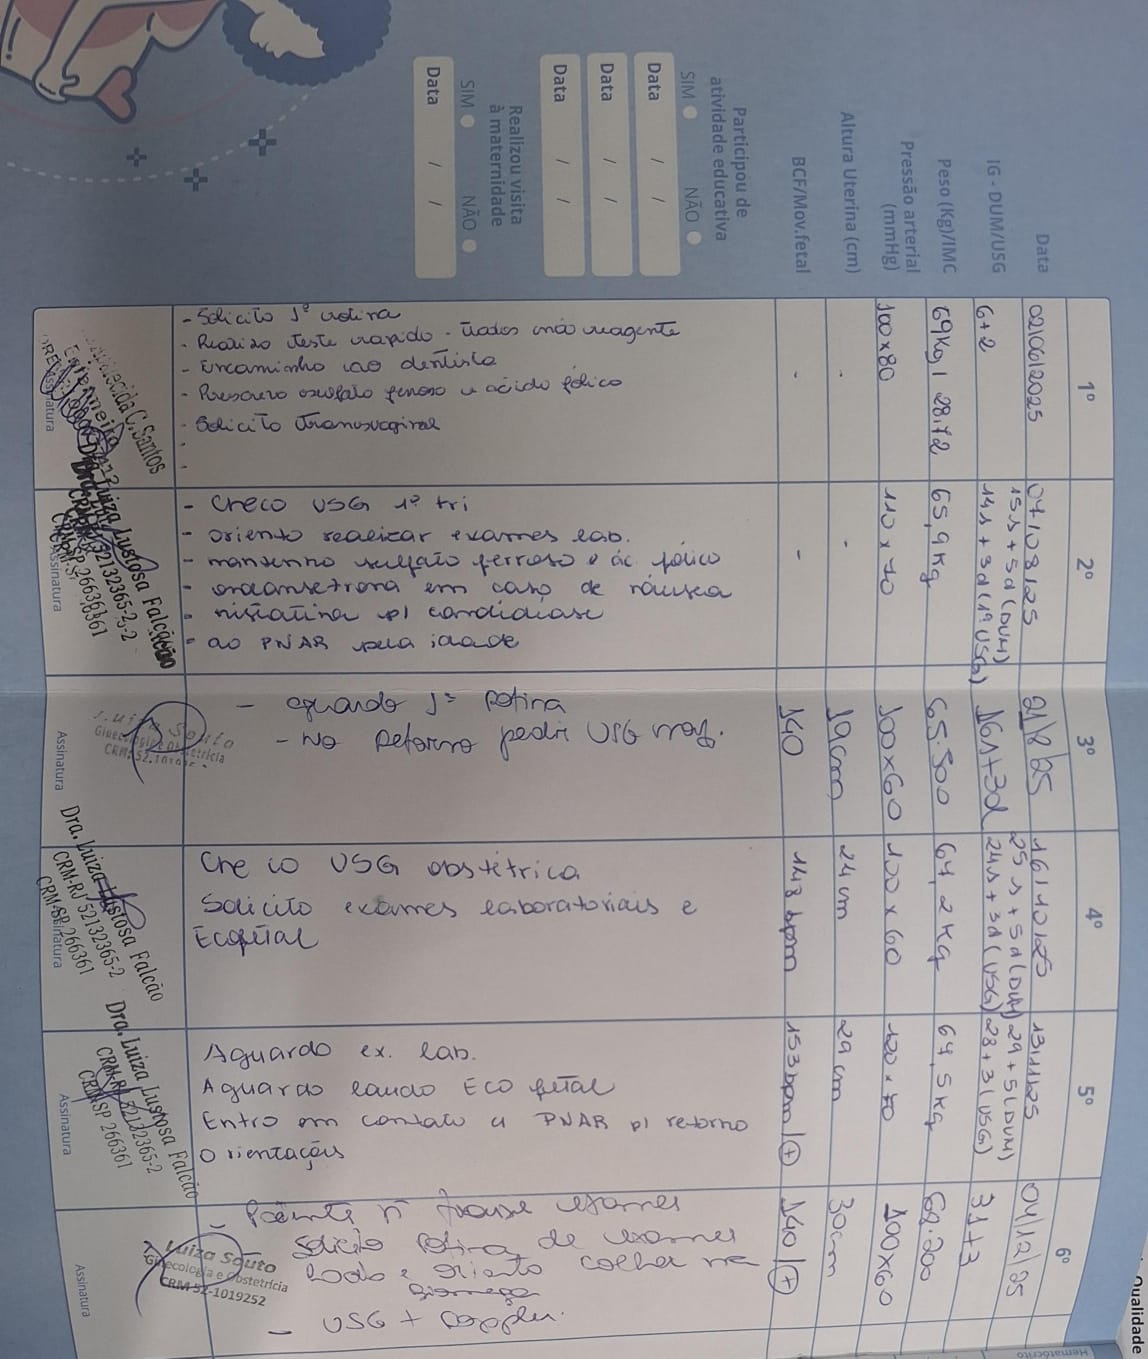 Qualidade
Hematócrito
Data
IG - DUM/USG
Peso (Kg)/IMC
Pressão arterial
(mmHg)
Altura Uterina (cm)
BCF/Mov.fetal
Participou de
atividade educativa
SIM NÃO
Data / /
Data / /
Data / /
Realizou visita
à maternidade
SIM NÃO
Data / /
1º
02/06/2025
6+2
69Kg / 28.72
100x80
-
-
- Solicito 1ª rotina
- Realizo teste rapido - todos não reagente
- Encaminho ao dentista
- Prescrevo sulfato ferroso e ácido fólico
- Solicito Transvaginal
C. Santos
Enfermeira
Assinatura
2º
07/08/25
15s + 5d (DUM)
14s + 3d (1º USG)
65,9 Kg
110 x 70
-
-
- Checo USG 1º tri
- oriento realizar exames lab.
- mantenho sulfato ferroso e ác. fólico
- ondansetrona em caso de náusea
- nistatina p/ candidiase
- ao PNAR pela idade
Dra. Luiza Lustosa Falcão
CRM-RJ 52132365-2
CRM-SP 266361
Assinatura
3º
21/8/25
16s+3d
65.300
100x60
19cm
140
- aguardo 1ª rotina
- No retorno pedir USG morf.
Luiza Souto
Ginecologia e Obstetrícia
Assinatura
4º
16/10/25
25s + 5d (DUM)
24s + 3d (USG)
67,2 Kg
100 x 60
24 cm
148 bpm
Checo USG obstétrica
Solicito exames laboratoriais e
Ecofetal
Dra. Luiza Lustosa Falcão
CRM-RJ 52132365-2
CRM-SP 266361
Assinatura
5º
13/11/25
29 + 5 (DUM)
28 + 3 (USG)
67,5 Kg
29 cm
153 bpm / +
Aguardo ex. lab.
Aguardo laudo Eco fetal
Entro em contato c/ PNAR p/ retorno
Orientações
Dra. Luiza Lustosa Falcão
CRM-RJ 52132365-2
CRM-SP 266361
Assinatura
6º
04/12/25
31+3
68.300
100x60
30cm
140 / +
Paciente ñ trouxe exames
Solicito rotina de exames
e oriento colher na
- USG + Doppler.
Luiza Souto
Ginecologia e Obstetrícia
CRM 52-1019252
Assinatura